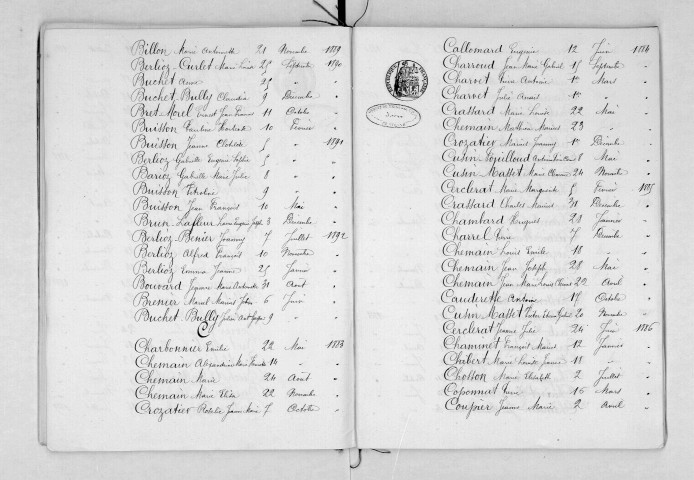 Billon Marie Antoinette 21 Novembre 1889
Berlioz-Curlet Marie Louise 25 Septembre 1890
Buchet Anna 25 " "
Buchet-Bully Claudia 9 Décembre "
Bret-Morel Ernest Jean François 11 Octobre "
Buisson Pauline 10 Février "
Buisson Jeanne Clotilde 5 " 1891
Berlioz Gabrielle Eugénie Sophie 5 " "
Barioz Gabrielle Marie Julie 8 " "
Buisson 9 " "
Buisson Jean François 10 Mai "
Brun-Lafleur Joseph 3 Décembre "
Berlioz-Benier Joanny 7 Juillet 1892
Berlioz Alfred François 10 Novembre "
Berlioz Emma Jeanne 25 Janvier "
Bouvard Marie Antoinette 31 Août "
Brenier Marcel Marius 6 Juin "
Buchet-Bully 9 " "
C
Charbonnier Emilie 22 Mai 1883
Chemain Alexandrine Marie 14 " "
Chemain Marie 24 Août "
Chemain Marie Elisa 22 Novembre "
Crozatier Rosalie Jeanne Marie 7 Octobre "
Callomard Eugénie 12 Juin 1884
Charroud Jean Marie Gabriel 15 Septembre "
Charvet Antoine 1er Mars "
Charvet Julie 1er " "
Crassard Marie Louise 22 Mai "
Chemain Mathieu Marius 23 " "
Crozatier Marius Joanny 1er Décembre "
Cusin 8 Mai "
Cusin-Masset Marie 24 Novembre "
Cerclerat Marie Marguerite 5 Février 1885
Crassard Charles Marius 31 Décembre "
Chambard 28 Janvier "
Charrel 7 Décembre "
Chemain Louis Emile 18 " "
Chemain Jean Joseph 28 Mai "
Chemain Jean Marie Louis 22 Avril "
Cauderette Antoine 17 Octobre "
Cusin-Masset 20 Novembre "
Cerclerat Jeanne Julie 24 Juin 1886
Chaminet François Marius 12 Janvier "
Chibert Marie Louise Jeanne 11 " "
Chosson Marie Elisabeth 2 Juillet "
Coponnat 16 Mars "
Coupier Jeanne Marie 2 Avril "